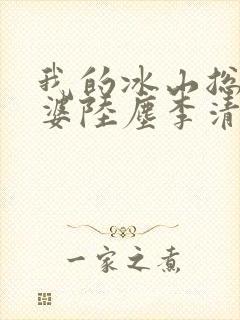 我的冰山总
婆陆尘李清
一家之煮